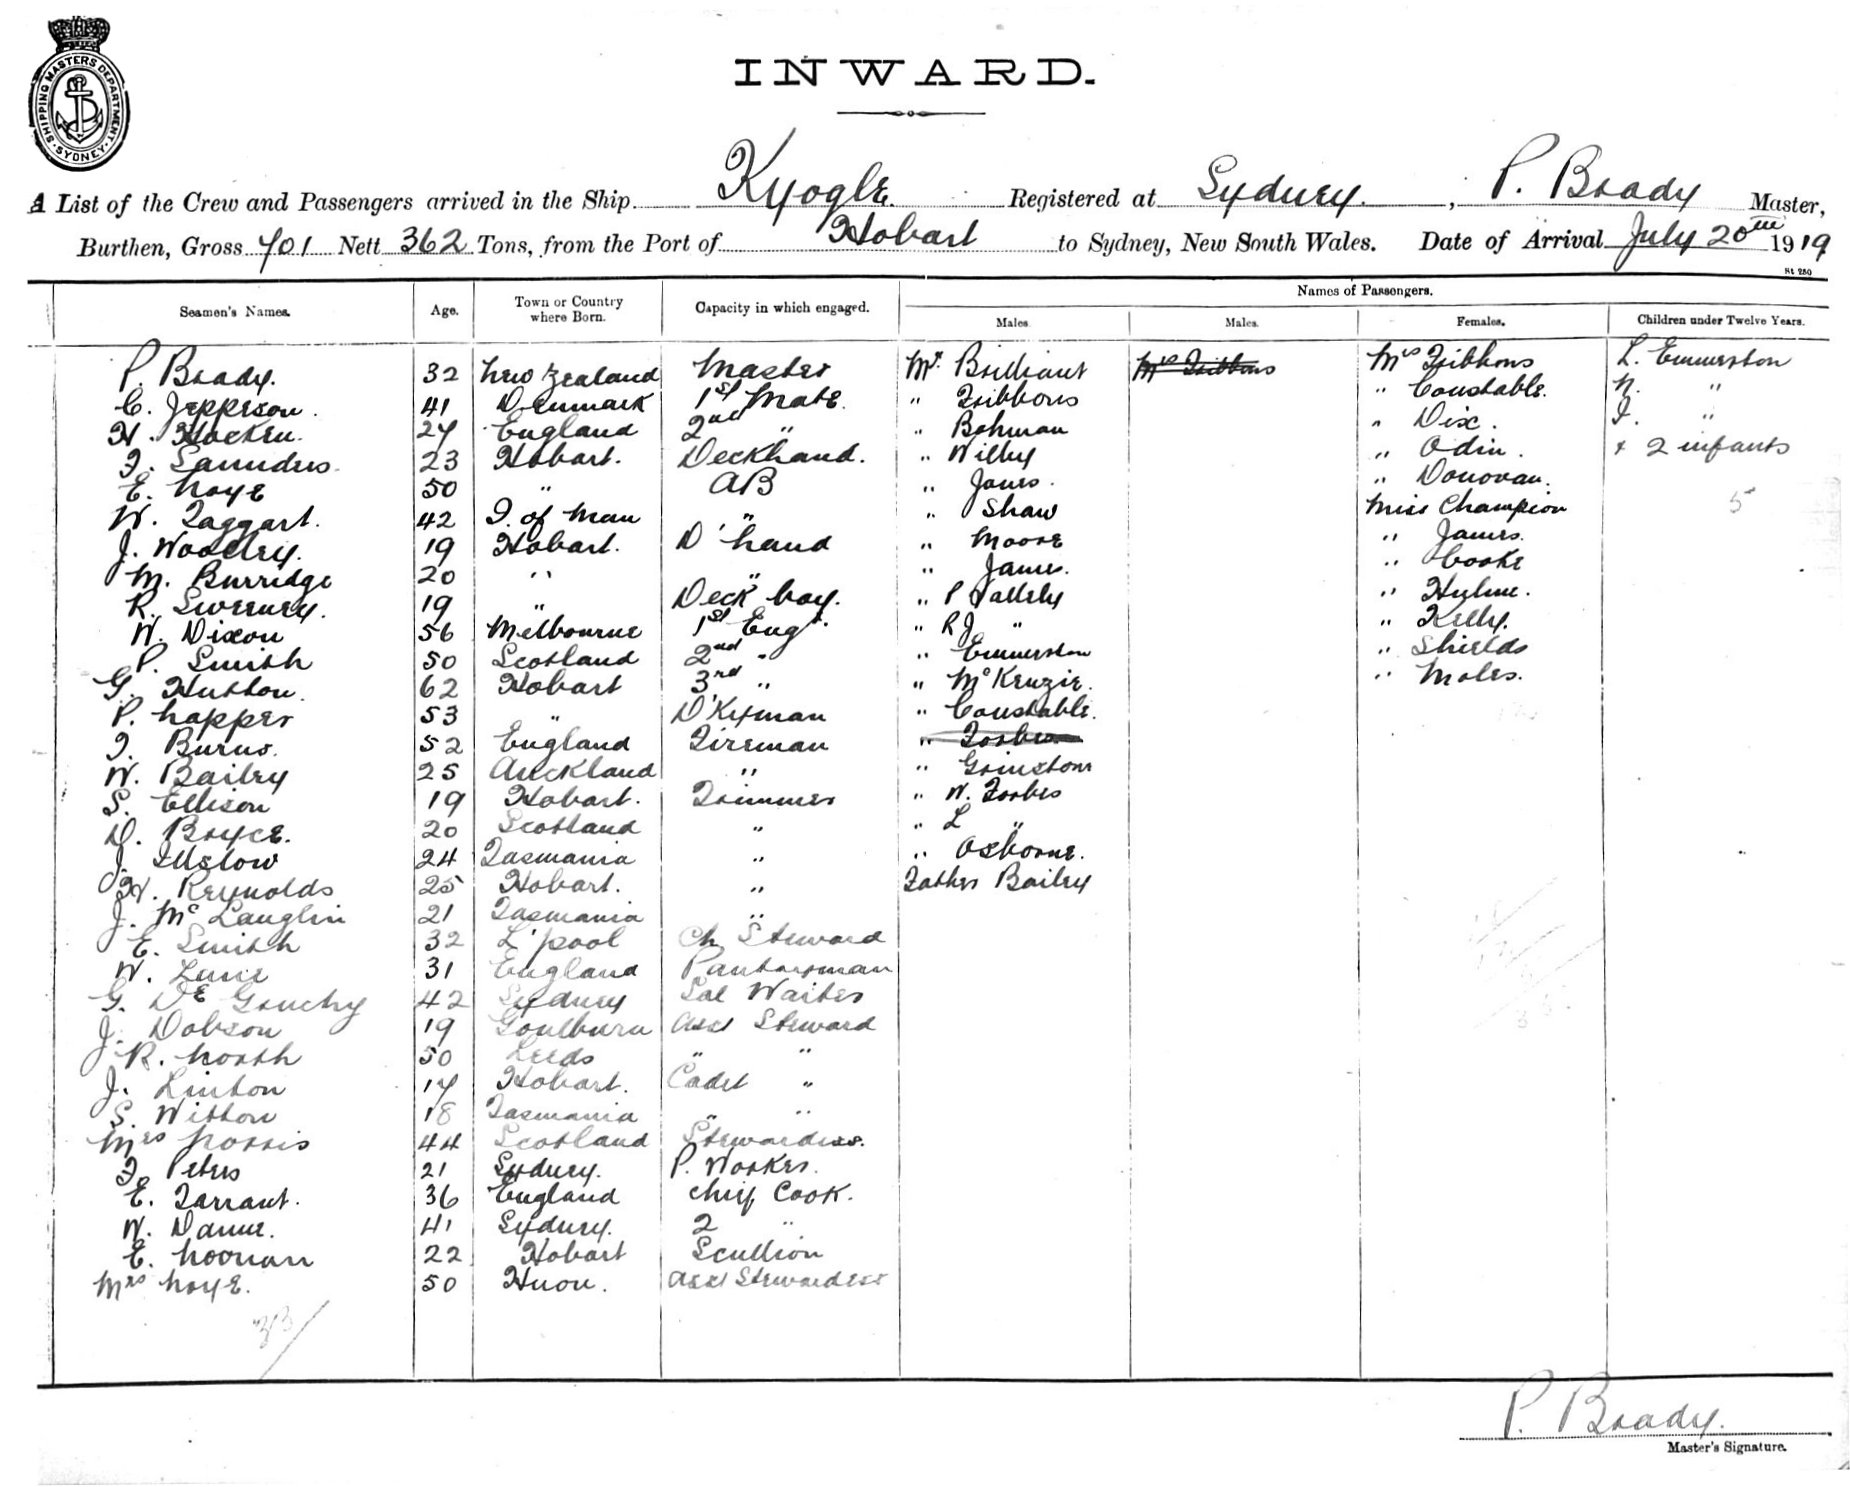 SHIPPING MASTERS DEPARTMENT
SYDNEY
INWARD.
A List of the Crew and Passengers arrived in the Ship Kyogle Registered at Sydney, P. Brady Master,
Burthen, Gross 701 Nett 362 Tons, from the Port of Hobart to Sydney, New South Wales. Date of Arrival July 20th 1919
St 250
Names of Passengers.
Seamen's Names. Age. Town or Country where Born. Capacity in which engaged. Males Males. Females. Children under Twelve Years.
P. Brady. 32 New Zealand Master Mr. Brilliant Mrs Fribbons Mrs Fribbons L. Emmerston
C. Jeppeson. 41 Denmark 1st Mate " Fribbons " Constable. N. "
H. Hocken. 27 England 2nd " " Bohman " Dix. I. "
F. Saunders. 23 Hobart. Deckhand. " Wilby " Odin. + 2 infants
E. Noye 50 " AB " Janes. " Donovan.
W. Taggart. 42 I. of Man " " Shaw Miss Champion 5
J. Woolley. 19 Hobart. D'hand " Moore " James.
M. Burridge 20 " " " James. " Cooke
R. Sweeney. 19 " Deck boy. " P Vallely " Hulme.
W. Dixon 56 Melbourne 1st Engr. " R J. " " Kelly.
P. Smith 50 Scotland 2nd " " Emmerston " Shields
G. Hutton. 62 Hobart 3rd " " McKenzie. " Moles.
P. Napper 53 " D'Kyman " Constable.
F. Burns. 52 England Fireman " Forbes
W. Bailey 25 Auckland " " Grinstone
S. Ellison 19 Hobart. Trimmer " W. Forbes
D. Bryce. 20 Scotland " " L "
J. 24 Tasmania " " Osborne.
H. Reynolds 25 Hobart. " Father Bailey
J. McLauglin 21 Tasmania "
E. Smith 32 L'pool Ch Steward
W. Lane 31 England Pantryman
G. De Gruchy 42 Sydney Sal Waiter
J. Dobson 19 Goulburn Asst Steward
R. North 50 Leeds " "
J. Linton 17 Hobart. Cadet "
S. Witton 18 Tasmania " "
Mrs Norris 44 Scotland Stewardess.
F. Peters 21 Sydney. P. Worker.
E. Tarrant. 36 England Chief Cook.
W. Danne. 41 Sydney. 2 "
E. Noonan 22 Hobart Scullion
Mrs Noye. 50 Huon. Asst Stewardess
33/
P. Brady.
Master's Signature.